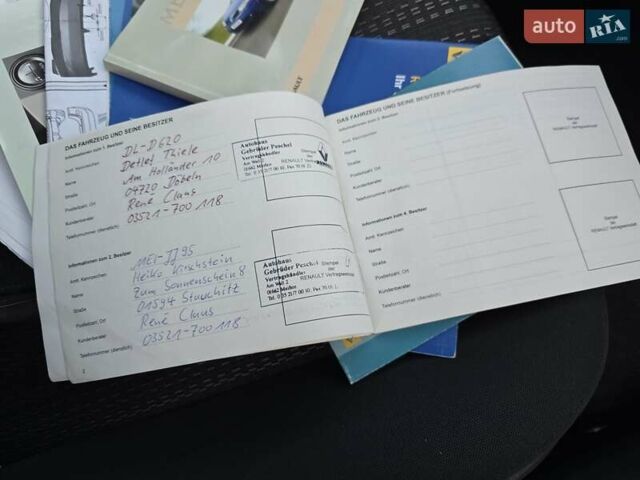 auto RIA.com
RENAULT
DAS FAHRZEUG UND SEINE BESITZER
Informationen zum 1. Besitzer
Amtl. Kennzeichen: DL-D620
Name Detlef Thiele
Straße Am Holländer 10
Postleitzahl, Ort 04720 Döbeln
Kundenberater René Claus
Telefonnummer (dienstlich) 03521-700 118
Autohaus
Gebrüder Peschel
Vertragshändler
Am Wall 2
Stempel
der
RENAULT Vertragswerkstatt
Informationen zum 2. Besitzer
Amtl. Kennzeichen: MEI-JJ95
Name Heiko Kirschstein
Straße Zum Sonnenschein 8
Postleitzahl, Ort 01594 Stauchitz
Kundenberater René Claus
Telefonnummer (dienstlich) 03521-700 118
Autohaus
Gebrüder Peschel
Vertragshändler
Am Wall 2
Stempel
der
RENAULT Vertragswerkstatt
2
DAS FAHRZEUG UND SEINE BESITZER (Fortsetzung)
Informationen zum 3. Besitzer
Amtl. Kennzeichen:
Name
Straße
Postleitzahl, Ort
Kundenberater
Telefonnummer (dienstlich)
Stempel
der
RENAULT Vertragswerkstatt
Informationen zum 4. Besitzer
Amtl. Kennzeichen:
Name
Straße
Postleitzahl, Ort
Kundenberater
Telefonnummer (dienstlich)
Stempel
der
RENAULT Vertragswerkstatt